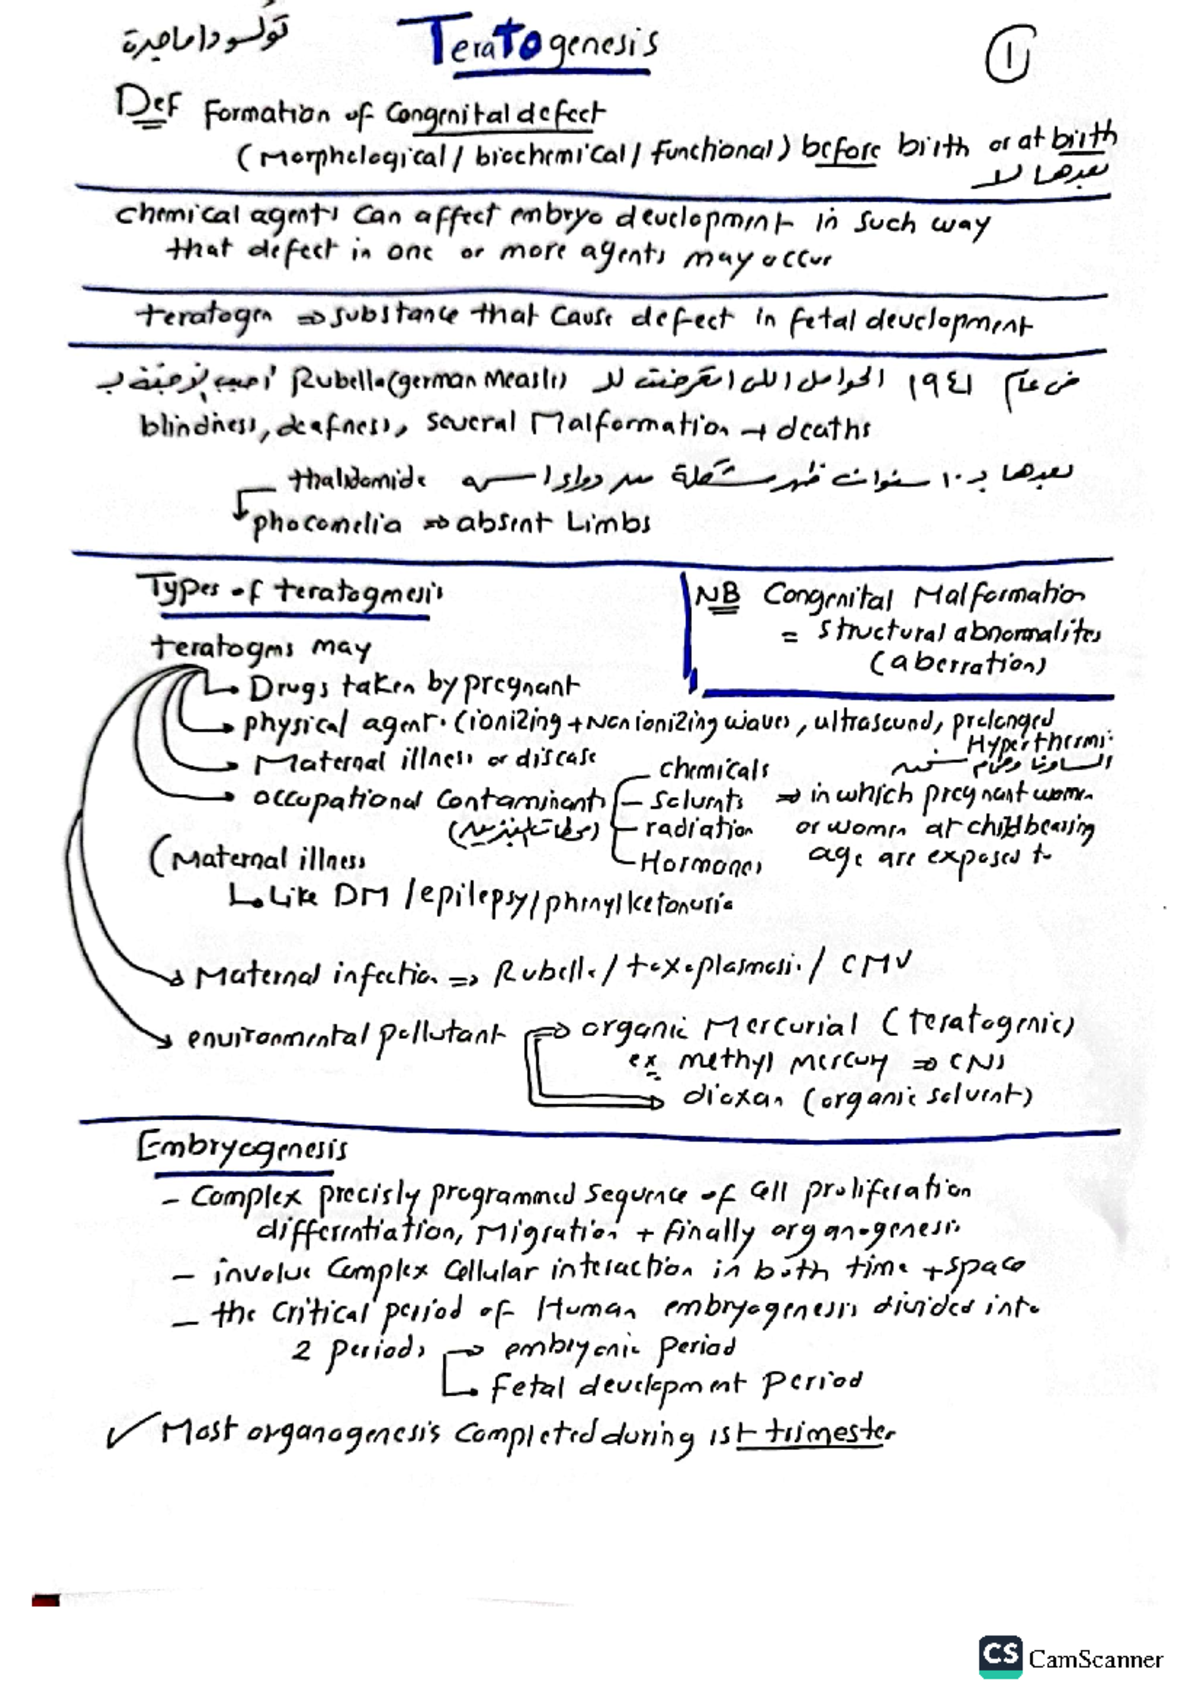 Teratogenesis
1
Def Formation of Congenital defect
(Morphological / biochemical / functional) before birth or at birth
بعدها لا
chemical agents can affect embryo development in such way
that defect in one or more agents may occur
teratogen ⇒ substance that cause defect in fetal development
في عام ١٩٤١ الحوامل اللي اتعرضت لل Rubella (german Measls) أصيب الأجنة ب
blindness, deafness, several Malformation → deaths
بعدها بـ ١٠ سنوات ظهر مشكلة من دواء اسمه thalidomide
phocomelia ⇒ absent Limbs
Types of teratogenesis
NB Congenital Malformation
= structural abnormalites
(aberration)
teratogens may
Drugs taken by pregnant
physical agent. (ionizing + Non ionizing waves, ultrasound, prolonged
Hyperthermi.
Maternal illness or disease
الساونا وحمام
occupational contaminants
chemicals
Solvents
radiation
Hormones
⇒ in which pregnant women
or women at childbearing
age are exposed to
(Maternal illness
Like DM / epilepsy / phenylketonuria
Maternal infection ⇒ Rubella / toxoplasmosis / CMV
environmental pollutant ⇒ organic Mercurial (teratogenic)
ex methyl Mercury ⇒ CNS
dioxan (organic solvent)
Embryogenesis
- Complex precisly programmed sequence of cell proliferation
differentiation, Migration + finally organogenesis
- involve Complex Cellular interaction in both time + space
- the critical period of Human embryogenesis divided into
2 periods → embryonic period
Fetal development period
✓ Most organogenesis completed during 1st trimester
CS CamScanner